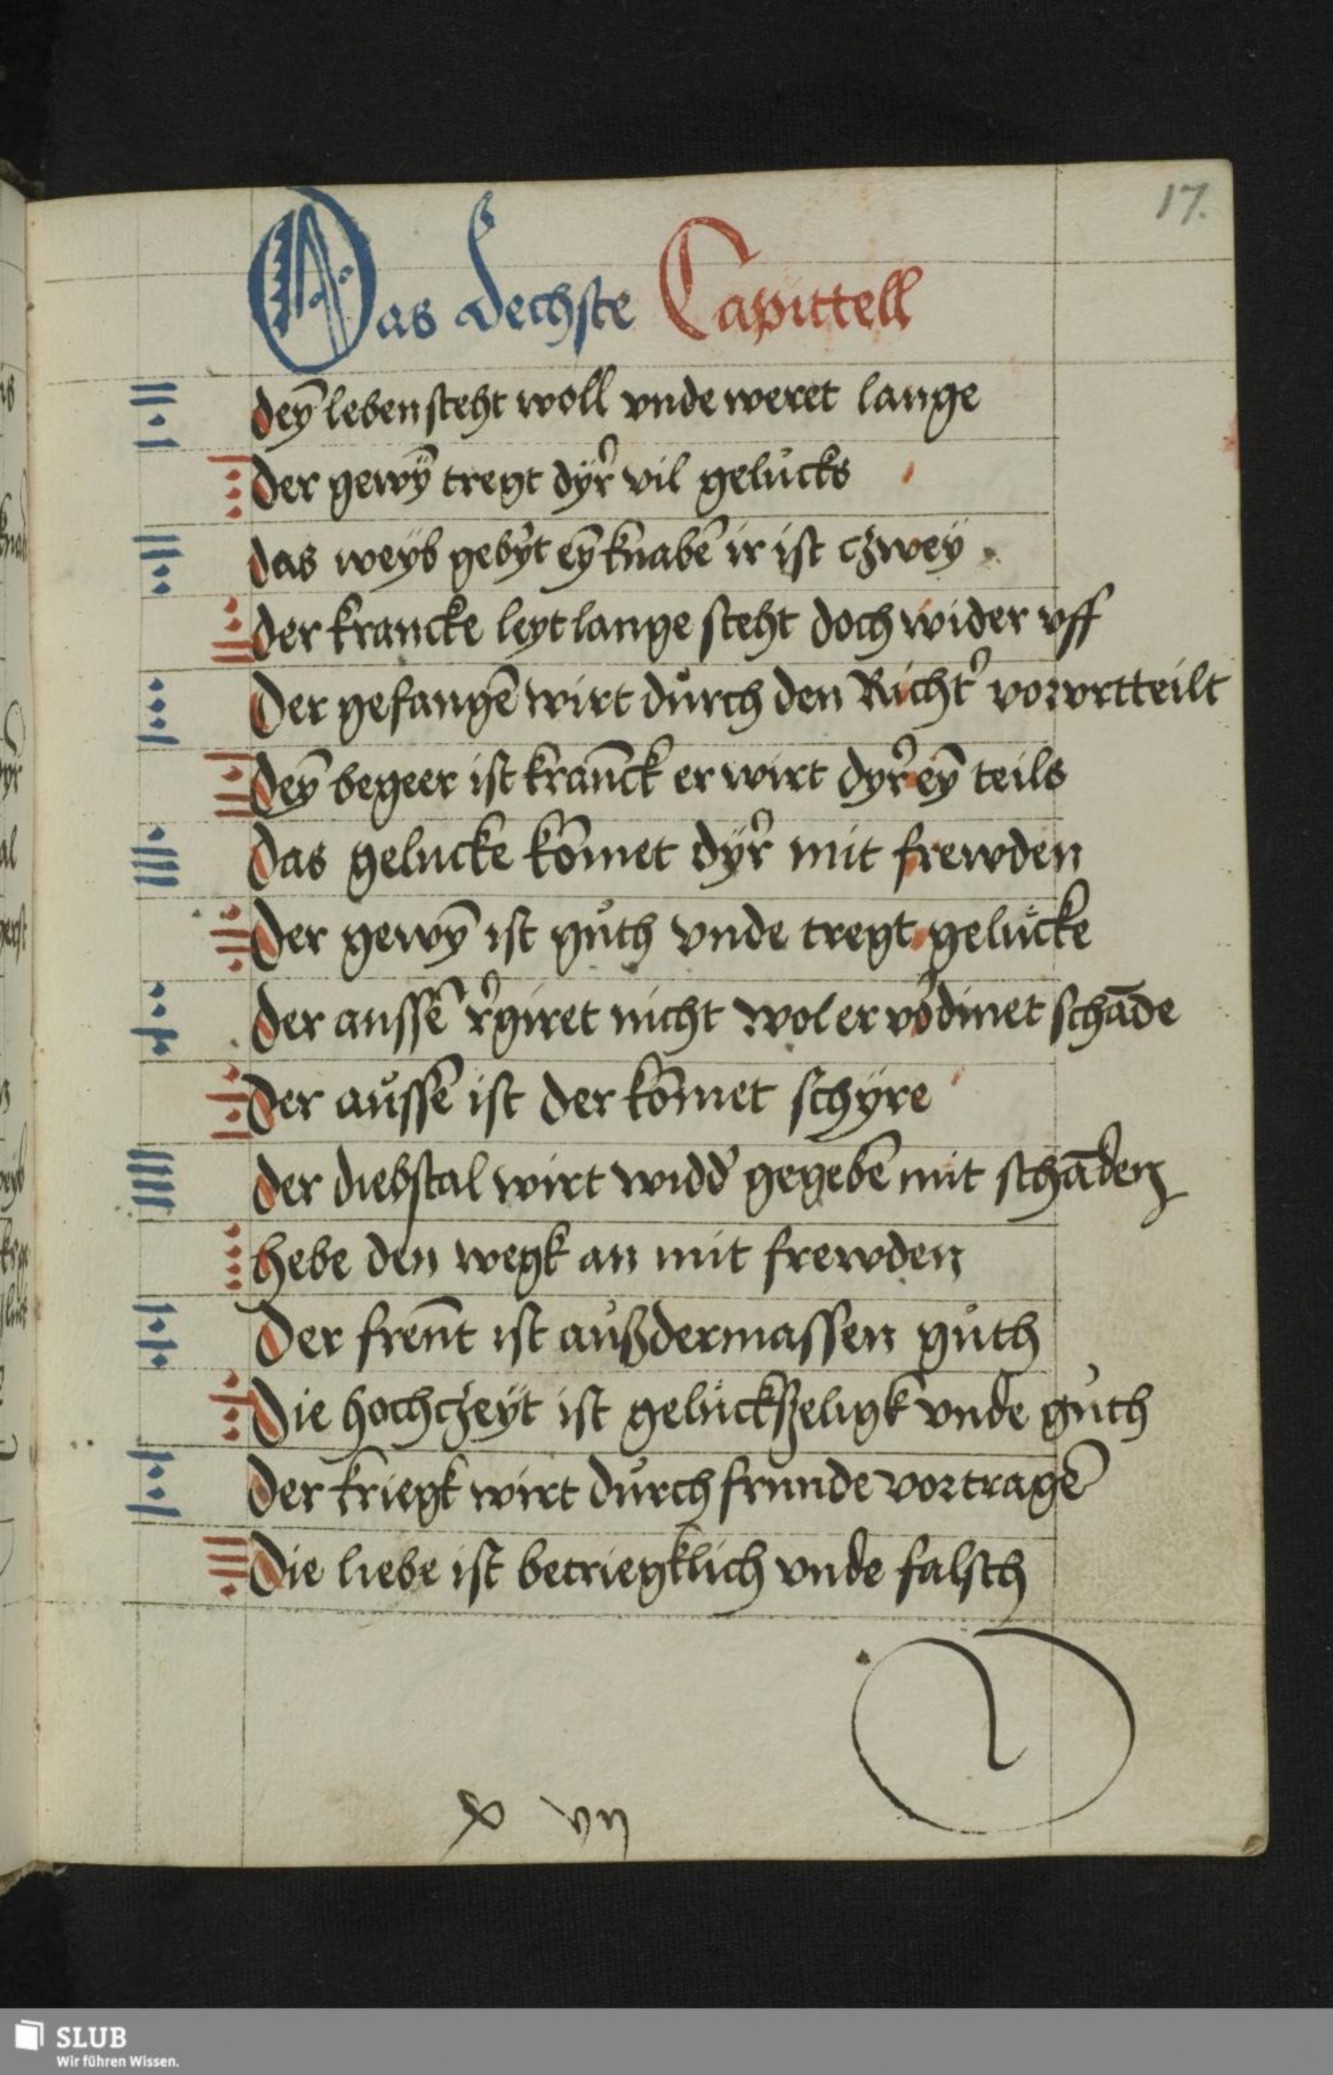 17.
Das Sechste Capittell
deȳ leben steht woll vnde weret lange
der gewȳ tregt dyr vil gelůcks
das weyb gebyt eȳ knabē ir ist czwey
der krancke leyt lange steht doch wider vff
Der gefangē wirt důrch den Richt' vorvrtteilt
deȳ begeer ist kranck er wirt dyr eȳ teils
das gelucke kōmet dyr mit frewden
Der gewȳ ist gůth vnde tregt gelůcke
der aussē r'giret nicht wol er v'dinet schāde
der aůssē ist der kōmet schyre
der diebstal wirt widd' gegebē mit schāden
hebe den wegk an mit frewden
Der frent ist außdermassen gůth
Die hochczeyt ist gelůckszeligk vnde gůth
der kriegk wirt důrch frunde vortragē
Die liebe ist betriegklich vnde falsch
x vij
SLUB
Wir führen Wissen.